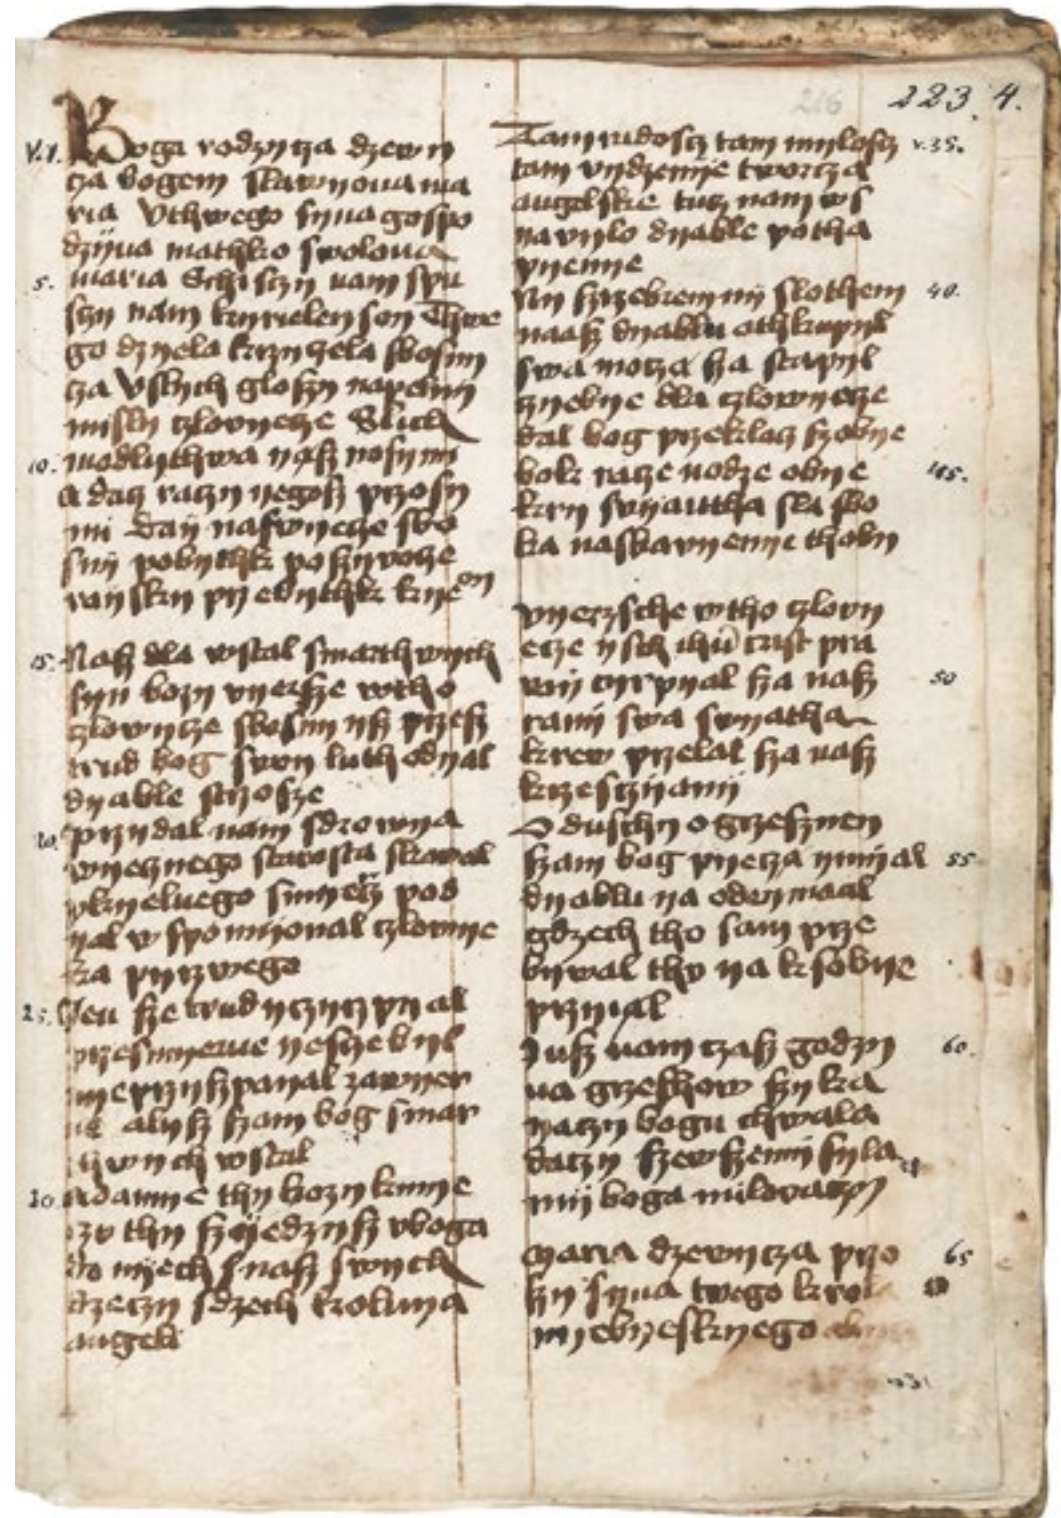 223. 4.
216
v.1. Boga rodzycza dzewy
cza bogem slawyona ma
ria Uthwego syna gospo
dzyna mathko swolona
5. maria Schisczy nam spu
sczy nam kyrieleyson Thwe
go dzyela krzyczela sbosny
cza Uslysch glossy napelny
misly czlowyecze Slich
10. modlythwa nasz nosymi
A dacz raczy yegosz prosy
mi day naswyecze sbo
sny pobythk poszywocze
rayskry przebythk kyeon
15. Nasz dla wstal smarthwych
syn bozy vyersze wtho
czlowycze sbosny ysz przesz
trud bog swoy luth odyal
dyable strosze
20. przydal nam sdrowya
wyecznego starosta skowal
pkyelnego smyercz pod
yal wspomyonal czlowye
ka pyrzwego
25. Jen sze trudy czyrzpyal
przesmyerne yesczebyl
nyeprzyspyal zawyer
ne alysz szam bog smar
thwych wstal
30. Adamye thy bozy kmye
czo thy szyedzysz vboga
do nyech snasz swych
dzeczy sdzech kroluya
angeli
Tam radoscz tam myloscz v.35.
tam vydzenye tworcza
angelskie tucz nam ws
yavylo dyable potha
pyenye
Ny szrzebrem ny slothem 40.
naasz dyablu othkupyl
swa mocza sza stapyl
czyebye dla czlowyecze
dal bog przeklacz szobye
bok racze nodze obye 45.
kry swyantha sla sbo
ka nasbavyenye thoby
vyerzsche wtho czlowy
ecze ysch ihu crist pra
wy cyrpyal sza nasz 50
rany swa swyatha
krew przelal sza nasz
krzesczyany
O duschy o grzeszney
szam bog pyecza ymyal 55
dyablu ya odeymaal
gdzech tho sam prze
bywal thv ya ksobye
przyial
Jusz nam czasz godzy 60.
na grzechow szyka
yaczy bogu chwala
daczy szewszemy syla
my boga milovaczy
Maria dzewycza pro 65
szy syna twego krola
nyebyeskyego